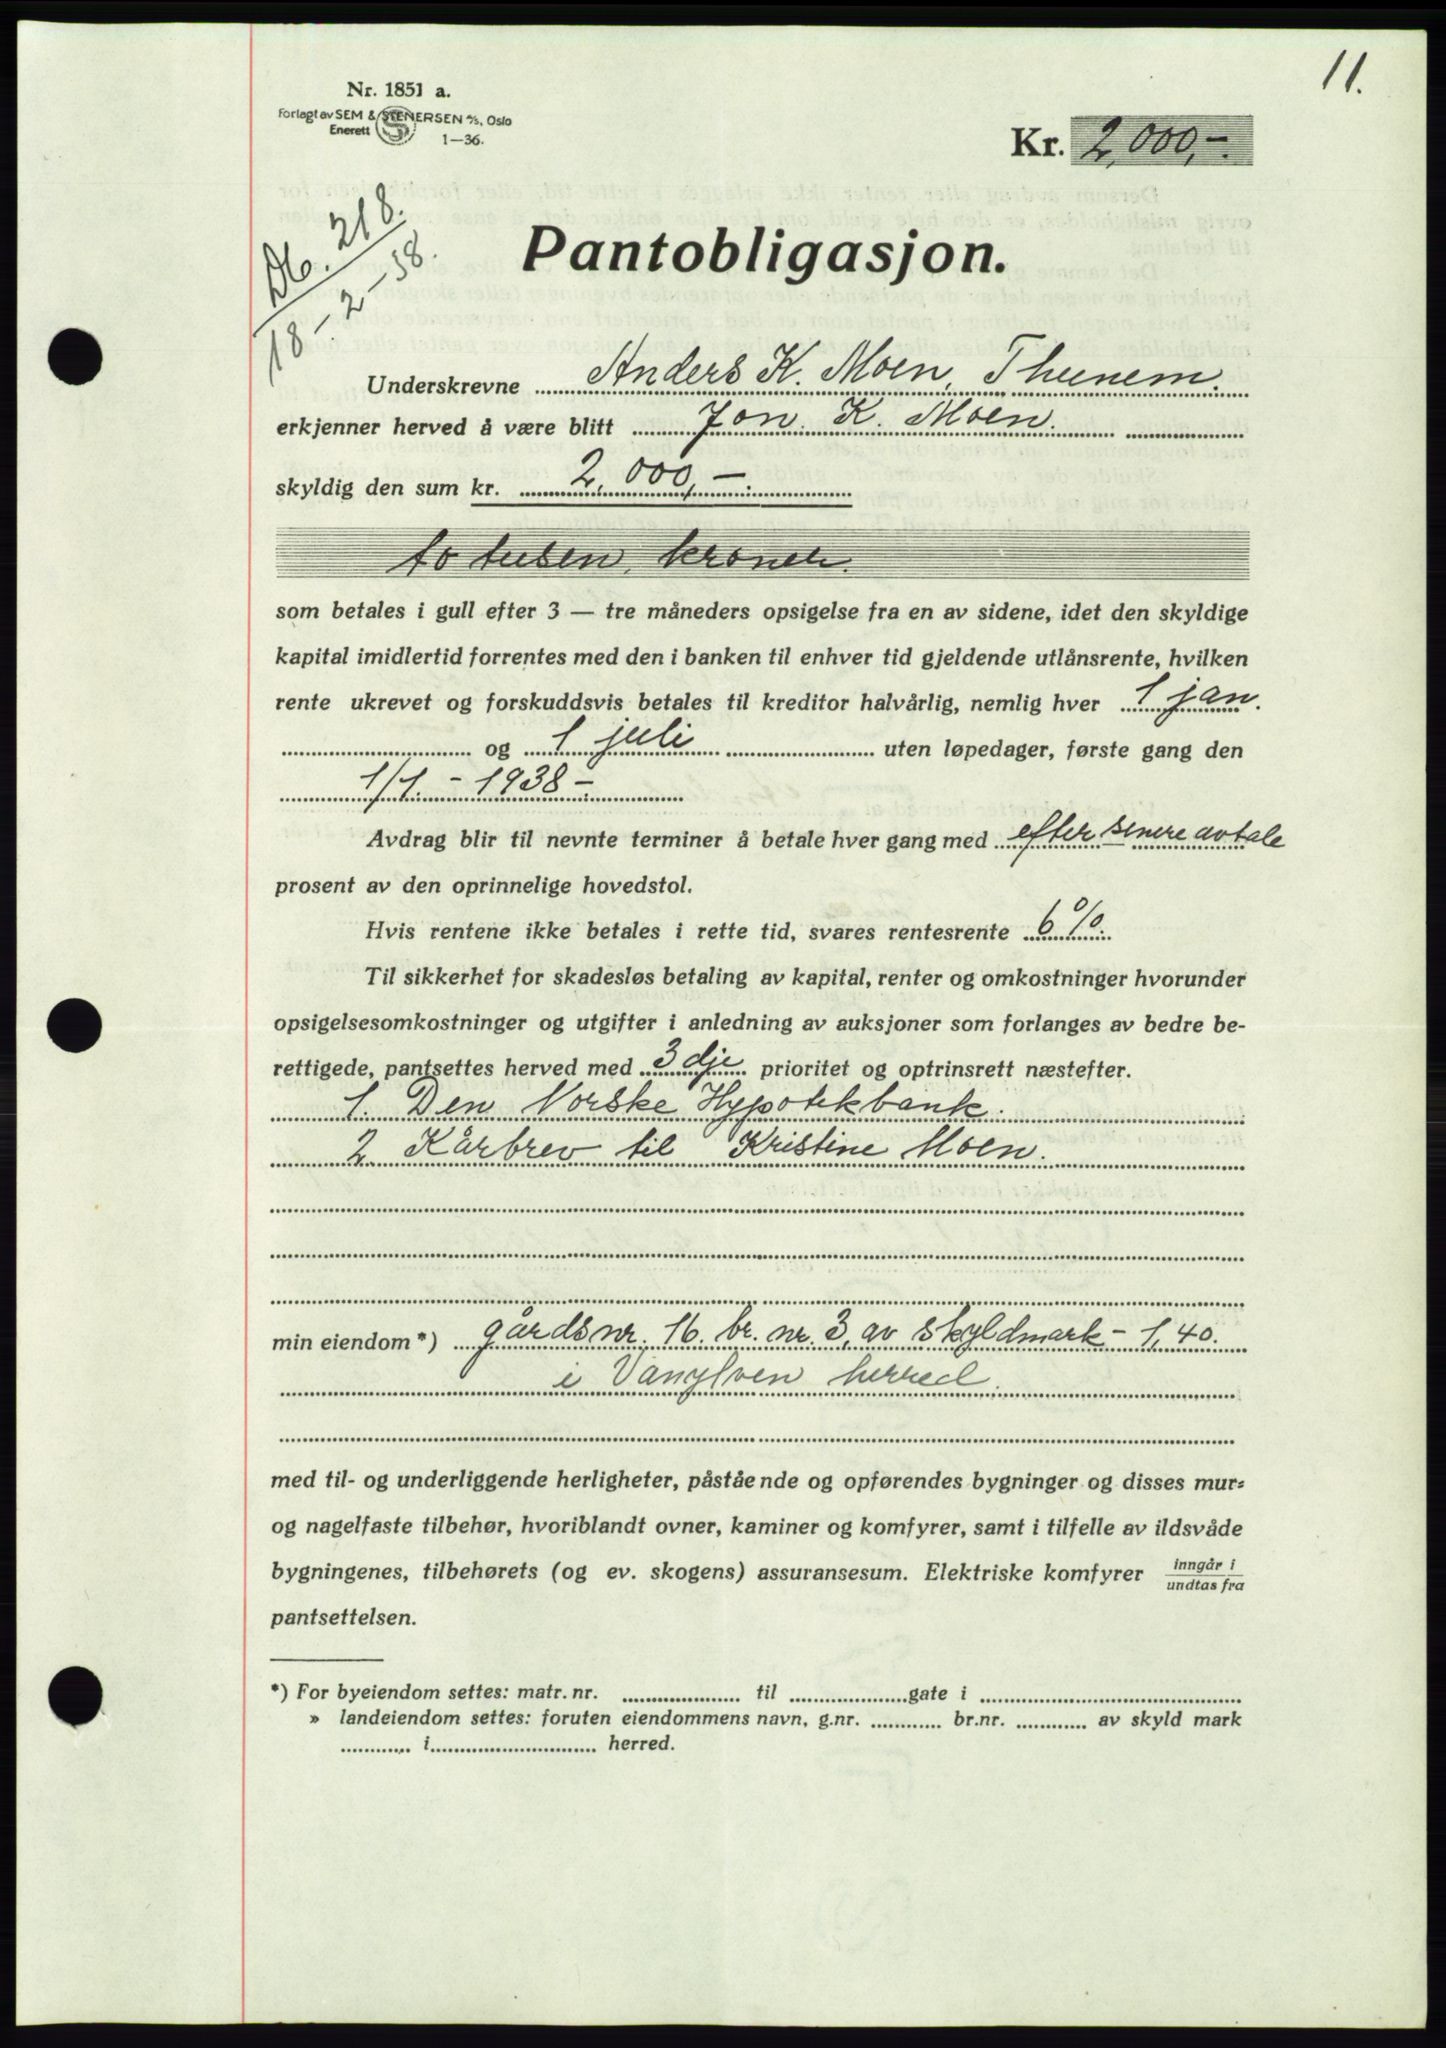 11.
Nr. 1851 a.
Forlagt av SEM & STENERSEN A/S, Oslo
Enerett
1—36.
Kr. 2,000,-
Db. 218.
18-2-38.
Pantobligasjon.
Underskrevne Anders K. Moen, Thunem.
erkjenner herved å være blitt Jon K. Moen.
skyldig den sum kr. 2,000,-
to tusen kroner.
som betales i gull efter 3 — tre måneders opsigelse fra en av sidene, idet den skyldige
kapital imidlertid forrentes med den i banken til enhver tid gjeldende utlånsrente, hvilken
rente ukrevet og forskuddsvis betales til kreditor halvårlig, nemlig hver 1 jan.
og 1 juli uten løpedager, første gang den
1/1. - 1938 -
Avdrag blir til nevnte terminer å betale hver gang med efter senere avtale
prosent av den oprinnelige hovedstol.
Hvis rentene ikke betales i rette tid, svares rentesrente 6%.
Til sikkerhet for skadesløs betaling av kapital, renter og omkostninger hvorunder
opsigelsesomkostninger og utgifter i anledning av auksjoner som forlanges av bedre be-
rettigede, pantsettes herved med 3dje prioritet og optrinsrett næstefter.
1. Den Norske Hypotekbank.
2 Kårbrev til Kristine Moen.
min eiendom *) gårdsnr. 16. br. nr. 3, av skyldmark - 1,40.
i Vanylven herred.
med til- og underliggende herligheter, påstående og opførendes bygninger og disses mur-
og nagelfaste tilbehør, hvoriblandt ovner, kaminer og komfyrer, samt i tilfelle av ildsvåde
bygningenes, tilbehørets (og ev. skogens) assuransesum. Elektriske komfyrer inngår i
undtas fra
pantsettelsen.
*) For byeiendom settes: matr. nr. til gate i
» landeiendom settes: foruten eiendommens navn, g.nr. br.nr. av skyld mark
i herred.